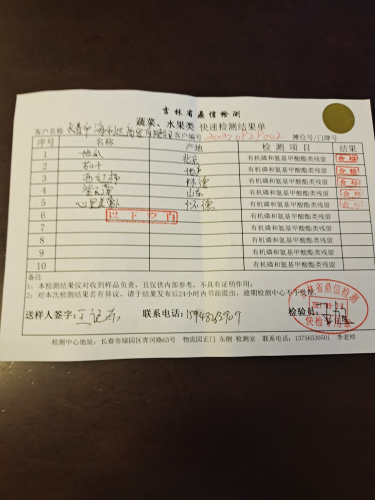 吉林省鼎信检测
蔬菜、水果类 快速检测结果单
客户名称 长春市 客户编号 摊位号/门牌号
序号 名称 产地 检测项目 结果
1 地瓜 有机磷和氨基甲酸酯类残留 合格
2 有机磷和氨基甲酸酯类残留 合格
3 怀德 有机磷和氨基甲酸酯类残留 合格
4 山东 有机磷和氨基甲酸酯类残留 合格
5 心里美 怀德 有机磷和氨基甲酸酯类残留 合格
6 以下空白 有机磷和氨基甲酸酯类残留
7 有机磷和氨基甲酸酯类残留
8 有机磷和氨基甲酸酯类残留
9 有机磷和氨基甲酸酯类残留
10 有机磷和氨基甲酸酯类残留
备注
1：本检测结果仅对收到样品负责，且仅供内部参考，不具有证明作用；
2：对本次检测结果若有异议，请于结果发布后24小时内书面提出，逾期检测中心不予受理
送样人签字: 联系电话: 15948263709 检验员:
吉林省鼎信检测
快检专用章
检测中心地址: 长春市绿园区青冈路63号 物流园正门 东侧 检测室 联系电话: 13756530501 李老师